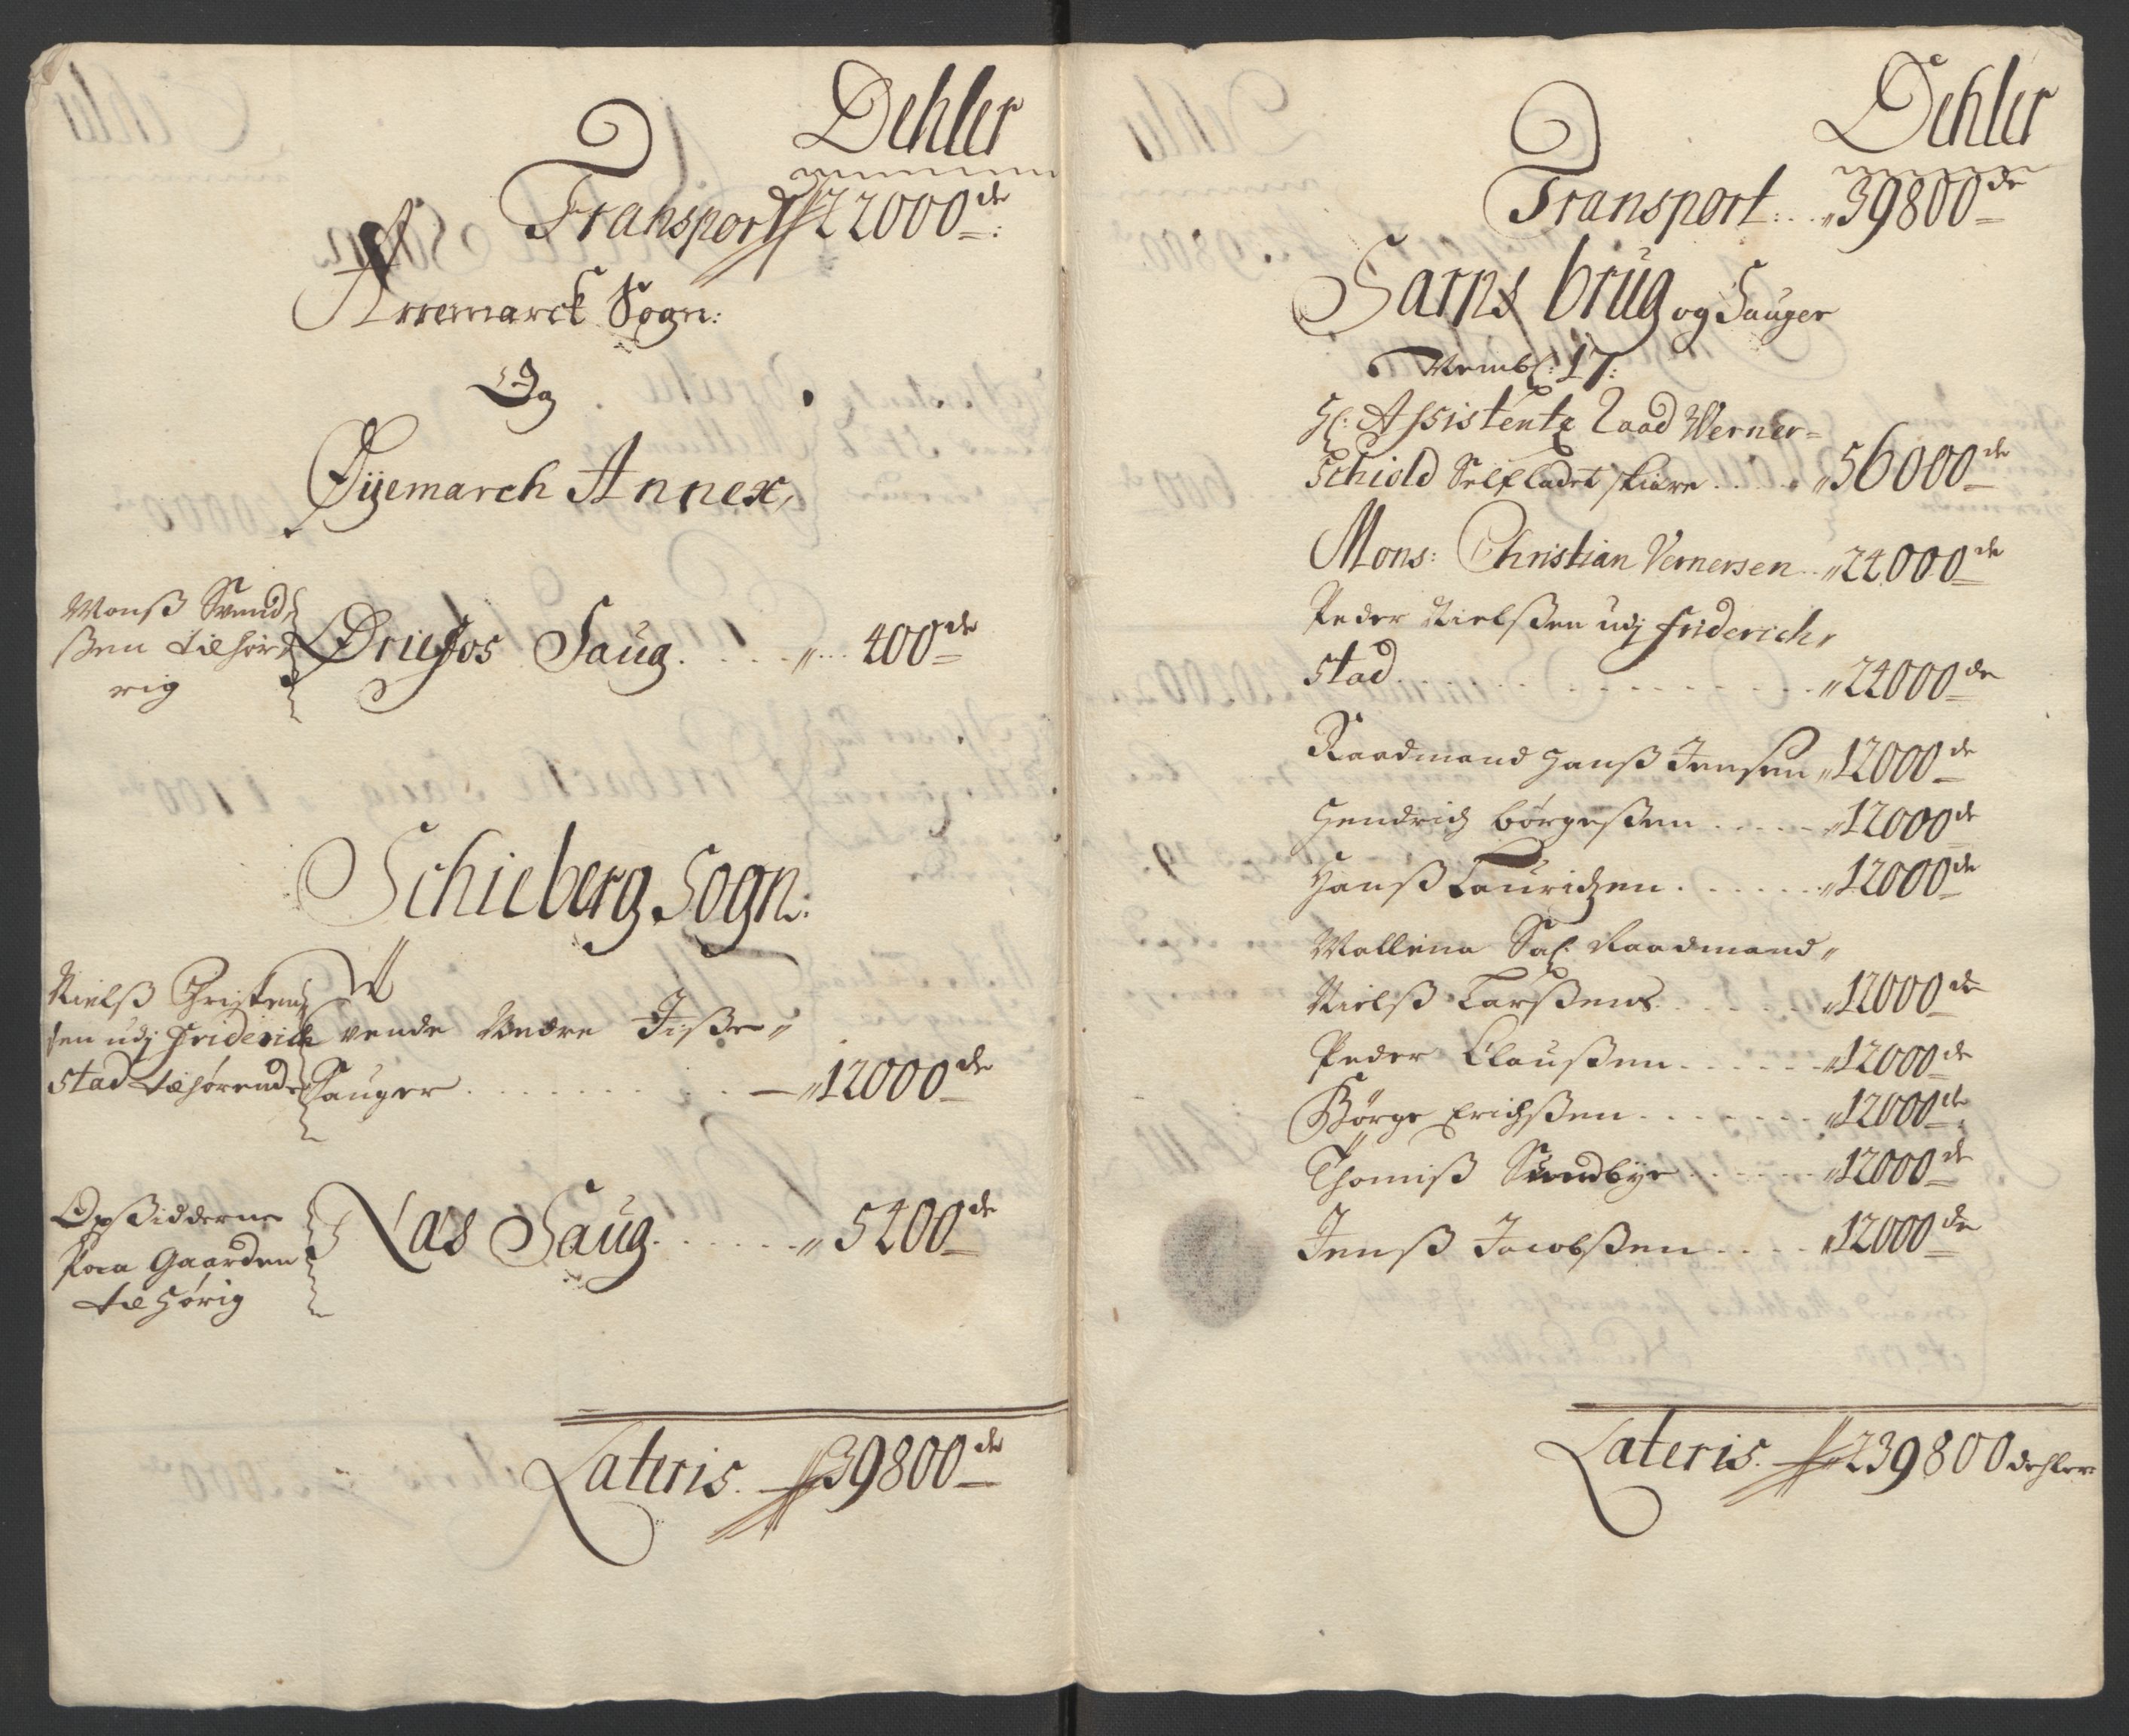 Dehler
Transport 22000 de
Arremarck Sogn:
Og
Øÿemarch Annex,
Monß Svend,
ßen tilhør,
rig
Driefos Saug . . . . . 400 de
Schieberg Sogn:
Nielß Christen,
sen udj Friderich
stad tilhørende
vende Nedre Tißer,,
Sauger . . . . . . . . 12000 de
Opßidderne
Paa Gaarden
tilhørig
Næs Saug . . . . . . 5400 de
Lateris. 39800 de
Dehler
Transport: . . 39800 de
Sarps brüg og Sauger
Nembl: 17:
Hr: Assistentz Raad Werner=
Schiold Self ladet skiære . . . . 56000 de
Mons: Christian Vernersen . . 24000 de
Peder Nielßen udj Friderich,
stad . . . . . . . . . . . 24000 de
Raadmand Hanß Jensen 12000 de
Hendrich Børgeßen . . . . . 12000 de
Hanß Lauridzen . . . . . . 12000 de
Mallena Sal: Raadmand,,
Nielß Larßens . . . . . . 12000 de
Peder Claußen . . . . . . 12000 de
Børge Erichßen . . . . . . . 12000 de
Thomiß Sundbÿe . . . . . . 12000 de
Jenß Jacobßen . . . . 12000 de
Lateris. 239800 dehler